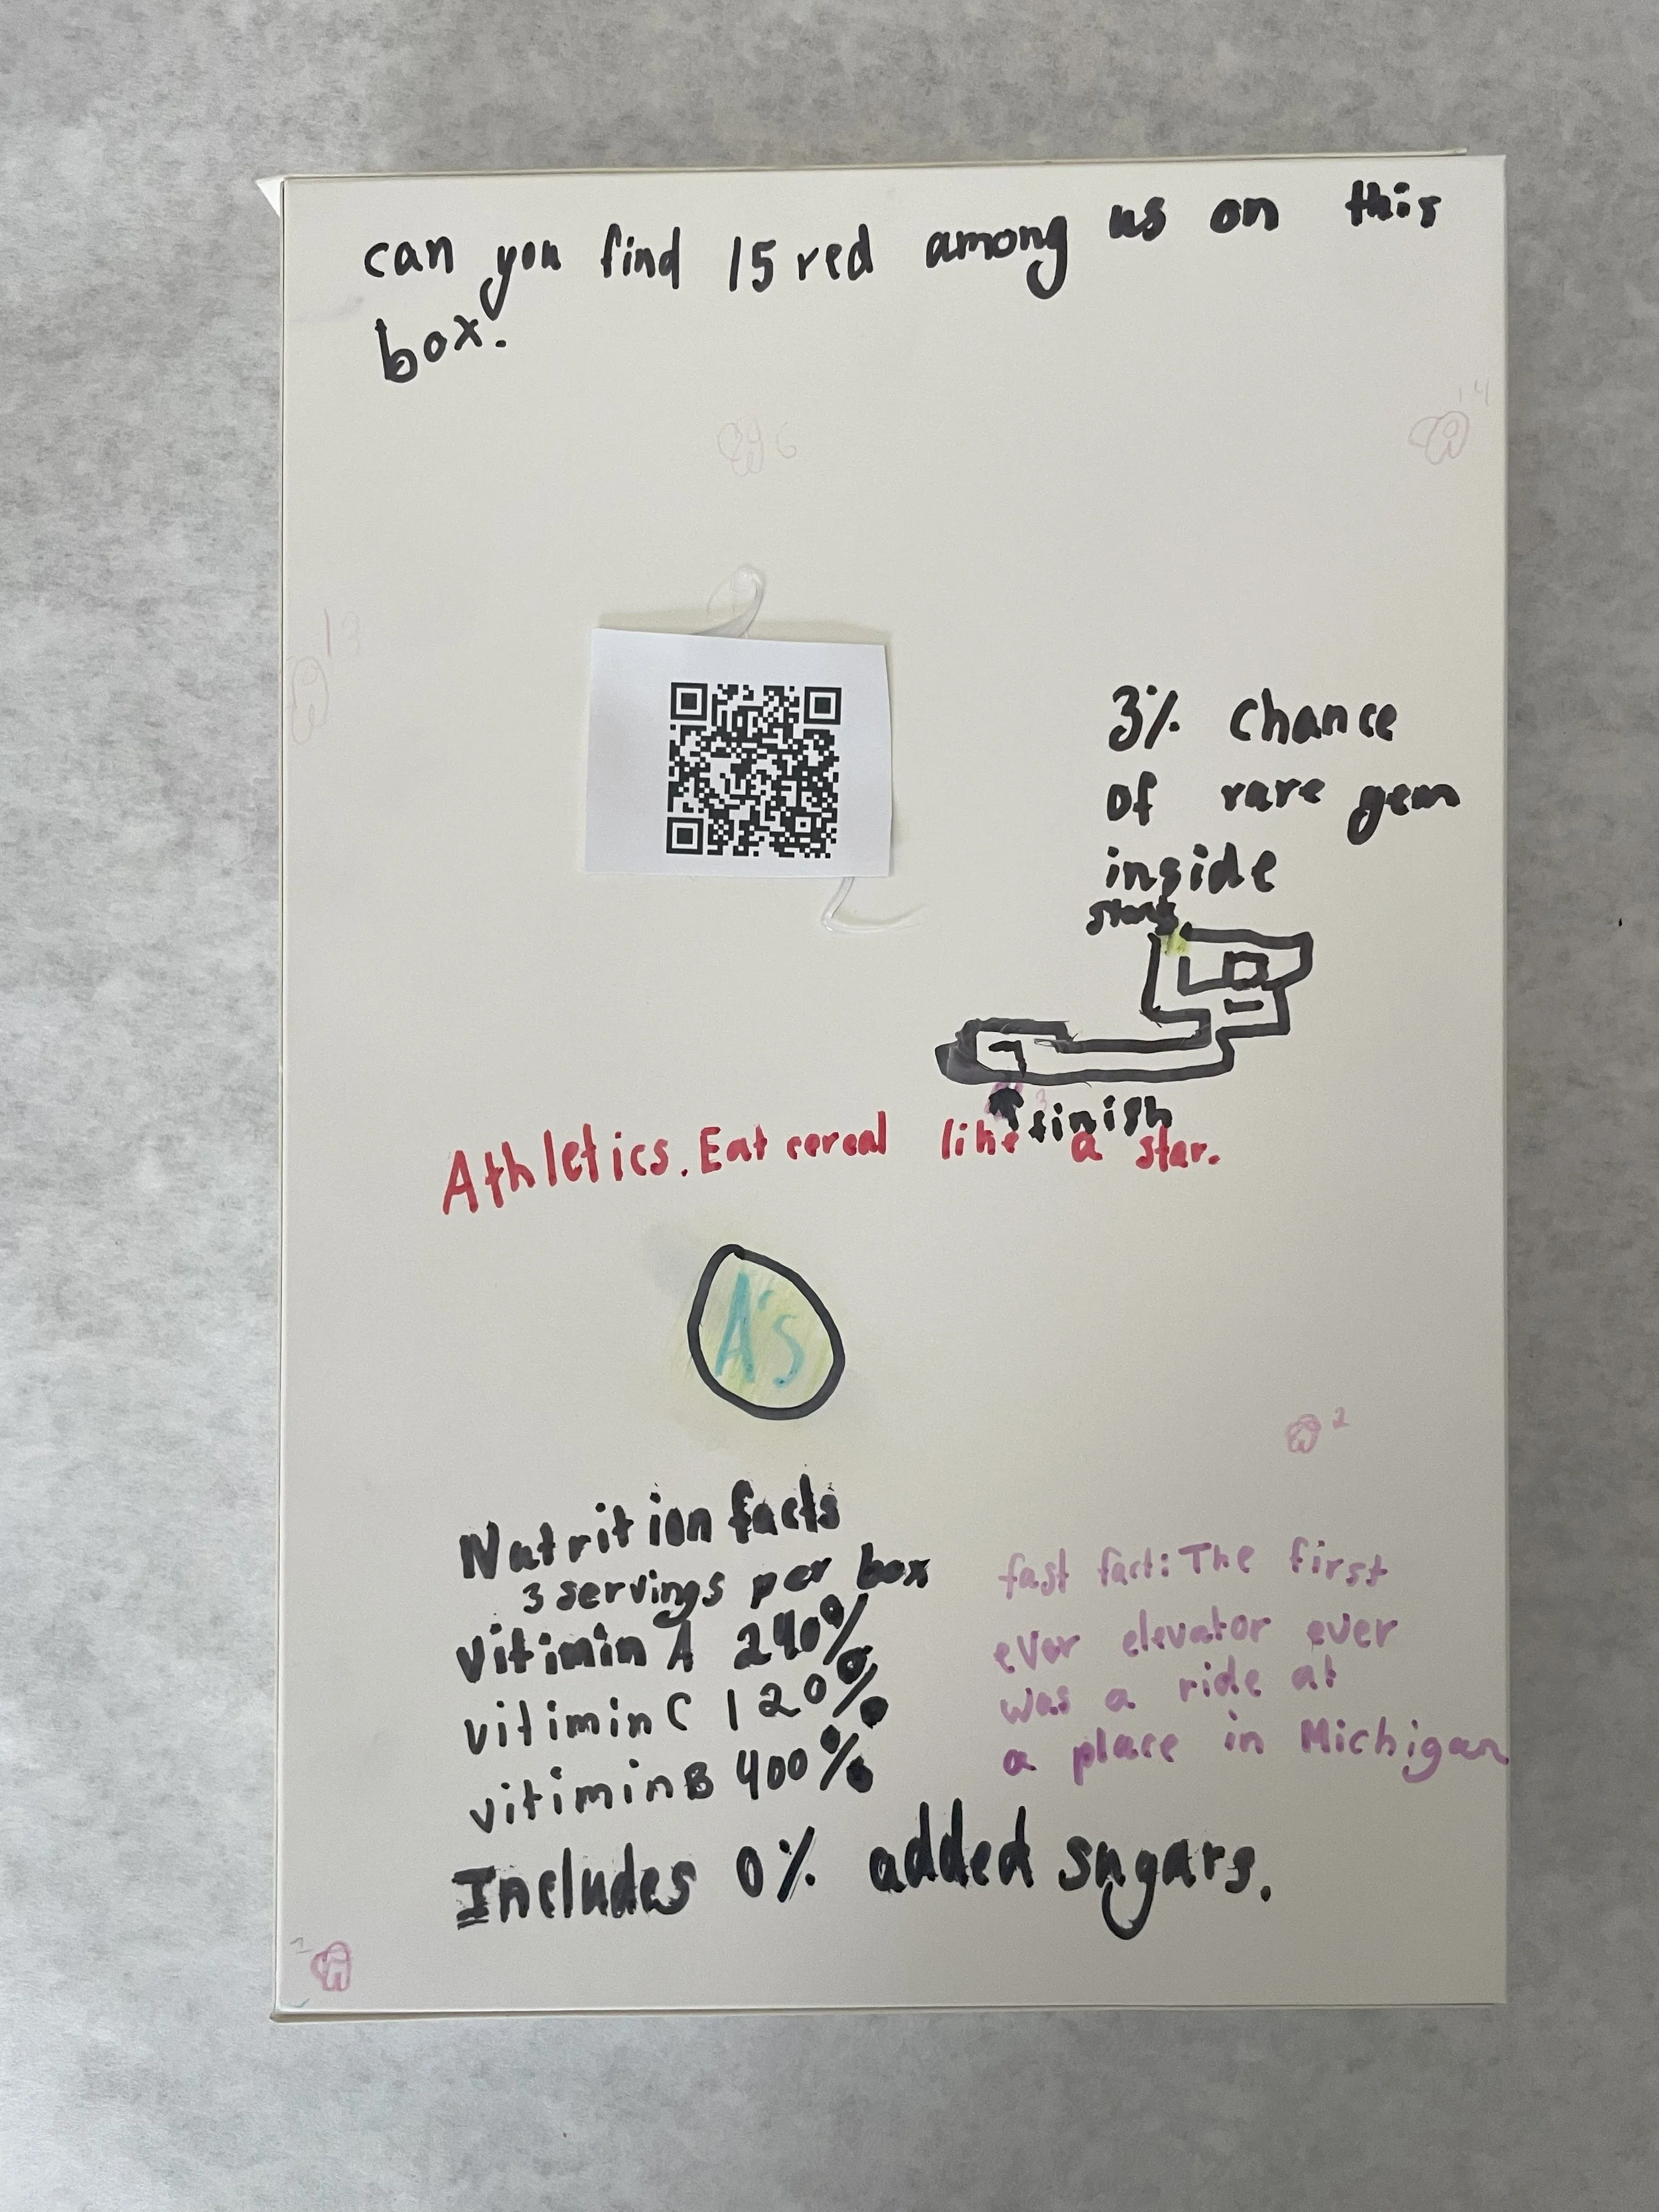 can you find 15 red among us on this
box.
6
14
13
3% chance
of rare gem
inside
start
3
finish
Athletics. Eat cereal like a star.
A's
2
Nutrition facts
3 servings per box
vitimin A 240%
vitimin C 120%
vitimin B 400%
Includes 0% added sugars.
fast fact: The first
ever elevator ever
was a ride at
a place in Michigan